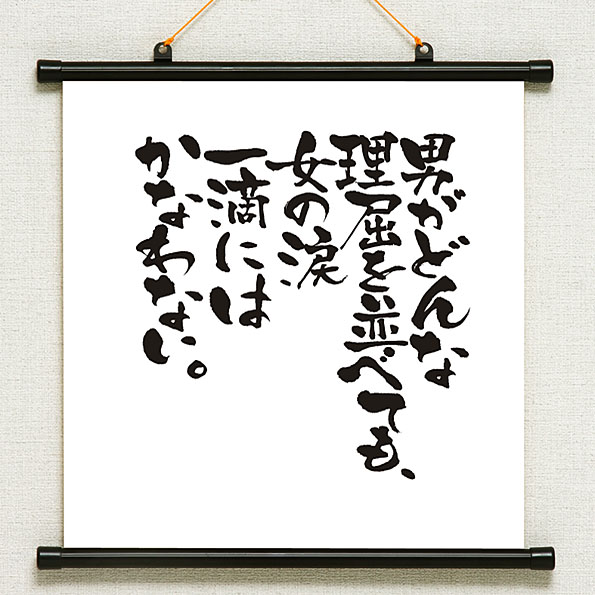 男がどんな
理屈を並べても、
女の涙
一滴には
かなわない。